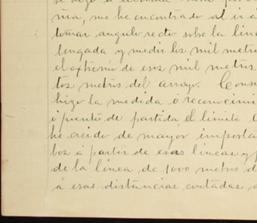 ñia, me he encontrado al ir á
tomar angulo recto sobre la line
longada y medir los mil metro
el extremo de esos mil metros
tos metros del arroyo.
hizo la medida ó reconocimi
ó punto de partida el límite
he creido de mayor importa
bos á partir de esas lineas y
de la linea de 1000 metros d
á esas distancias, contadas